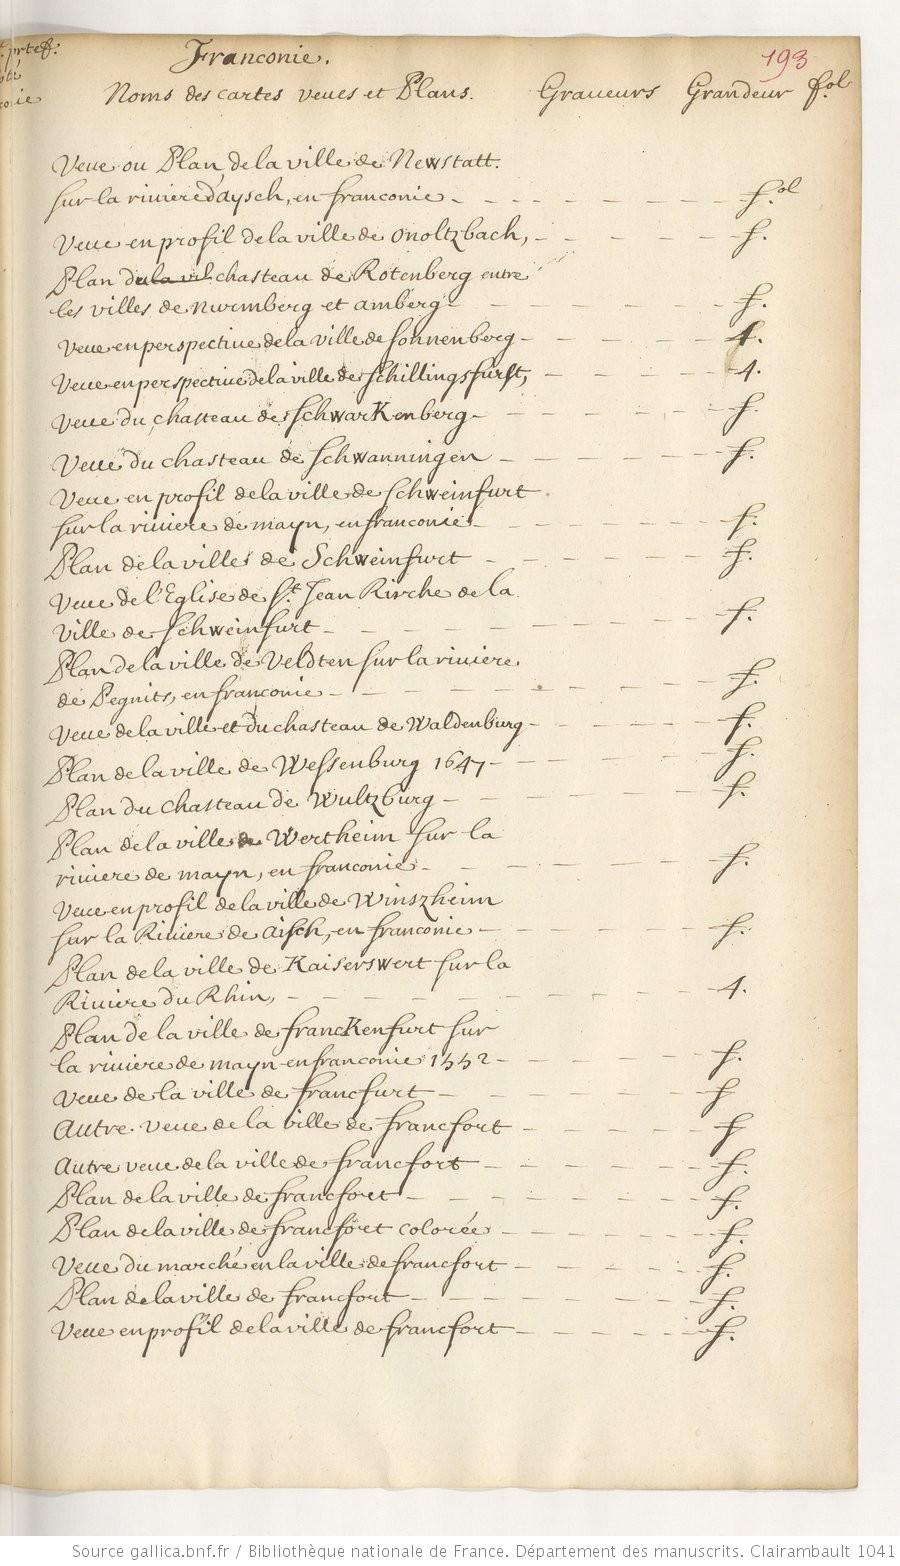 Franconie.
193
Noms des cartes veues et Plans. Graueurs Grandeur fol
Veue ou Plan de la ville de Newstatt.
sur la riuiere d'aysch, en franconie - f.ol
Veue en profil de la ville de onoltzbach, - f.
Plan du chasteau de Rotenberg entre
les villes de nuremberg et amberg - f.
Veue en perspectiue de la ville de sonnenberg - 4.
Veue en perspectiue de la ville de schillingsfurst, - 4.
Veue du chasteau de schwarKenberg - f.
Veue du chasteau de schwanningen - f.
Veue en profil de la ville de schweinfurt
sur la riuiere de mayn, en franconie - f.
Plan de la ville de Schweinfurt - f.
Veue de l'Eglise de St. Jean Kirche de la
Ville de schweinfurt - f.
Plan de la ville de Veldten sur la riuiere
de Pegnits, en franconie - f.
Veue de la ville et du chasteau de Waldenburg - f.
Plan de la ville de Wessenburg 1647 - f.
Plan du chasteau de Wultzburg - f.
Plan de la ville de Wertheim sur la
riuiere de mayn, en franconie - f.
Veue en profil de la ville de Winszheim
sur la Riuiere de aisch, en franconie - f.
Plan de la ville de Kaiserswert sur la
Riuiere du Rhin, - 4.
Plan de la ville de francKenfurt sur
la riuiere de mayn en franconie 1552 - f.
Veue de la ville de francfurt - f
Autre veue de la ville de francfort - f
Autre veue de la ville de francfort - f.
Plan de la ville de francfort - f.
Plan de la ville de francfort colorée - f.
Veue du marché en la ville de francfort - f.
Plan de la ville de francfort - f.
Veue en profil de la ville de francfort - f.
Source gallica.bnf.fr / Bibliothèque nationale de France. Département des manuscrits. Clairambault 1041